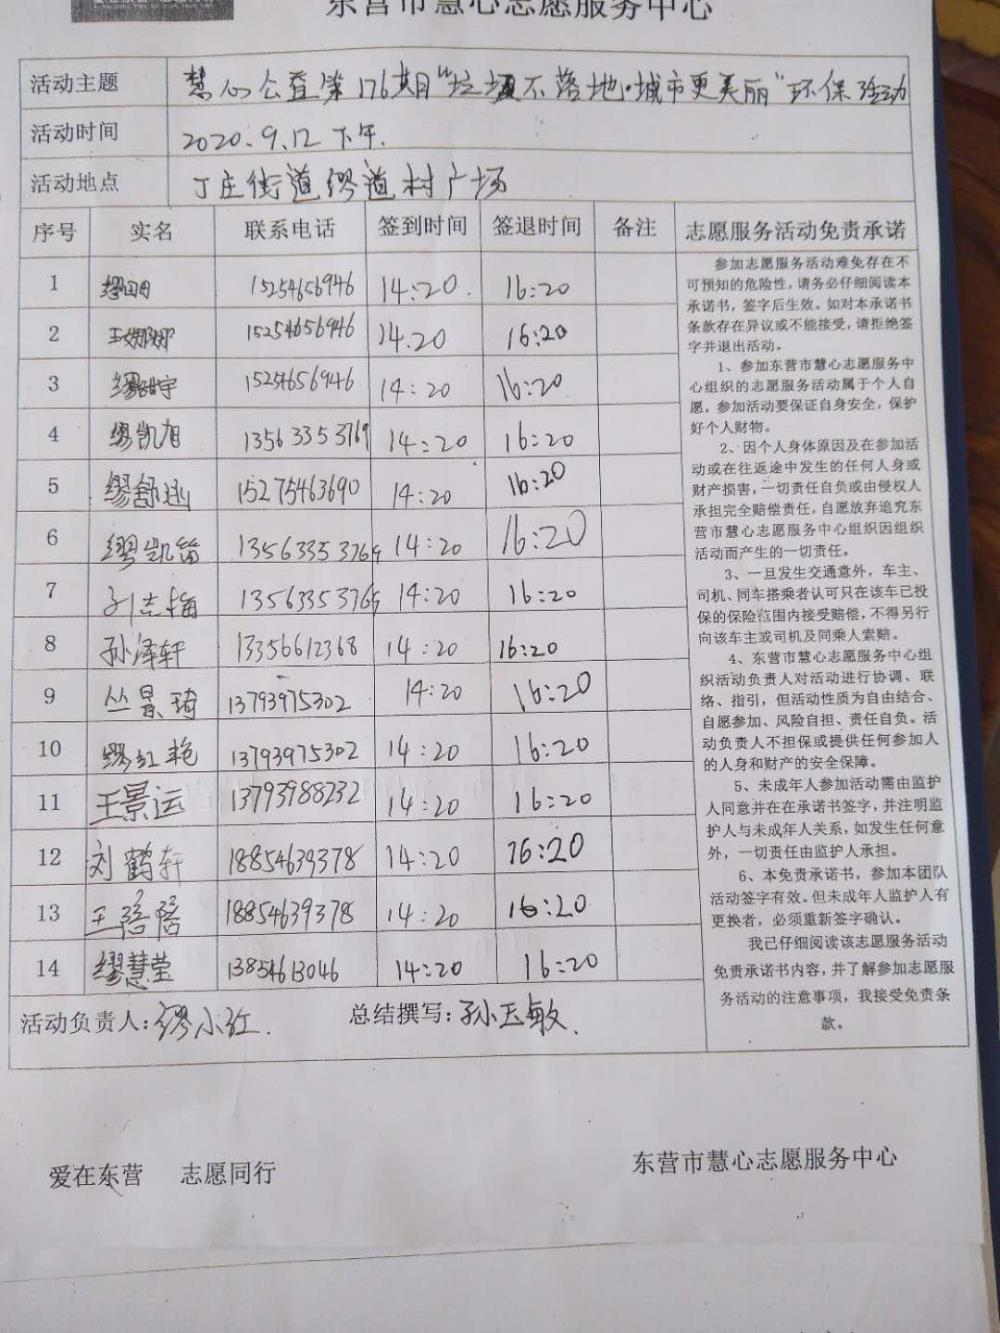 东营市慧心志愿服务中心
活动主题 慧心公益第176期“垃圾不落地·城市更美丽”环保活动
活动时间 2020.9.12 下午.
活动地点 丁庄街道缪道村广场
序号 实名 联系电话 签到时间 签退时间 备注 志愿服务活动免责承诺
1 15254656946 14:20. 16:20
2 王娜娜 15254656946 14:20 16:20
3 15254656946 14:20 16:20
4 缪凯旭 13563353769 14:20 16:20
5 缪舒迅 15275463690 14:20 16:20
6 缪凯笛 13563353769 14:20 16:20
7 刘志梅 13563353769 14:20 16:20
8 孙泽轩 13356612368 14:20 16:20
9 丛景琦 13793975302 14:20 16:20
10 缪红艳 13793975302 14:20 16:20
11 王景运 13793988232 14:20 16:20
12 刘鹤轩 18854639378 14:20 16:20
13 王蓓蓓 18854639378 14:20 16:20
14 缪慧莹 13854613046 14:20 16:20
参加志愿服务活动难免存在不
可预知的危险性，请务必仔细阅读本
承诺书，签字后生效。如对本承诺书
条款存在异议或不能接受，请拒绝签
字并退出活动。
1、参加东营市慧心志愿服务中
心组织的志愿服务活动属于个人自
愿，参加活动要保证自身安全，保护
好个人财物。
2、因个人身体原因及在参加活
动或在往返途中发生的任何人身或
财产损害，一切责任自负或由侵权人
承担完全赔偿责任，自愿放弃追究东
营市慧心志愿服务中心组织因组织
活动而产生的一切责任。
3、一旦发生交通意外，车主、
司机、同车搭乘者认可只在该车已投
保的保险范围内接受赔偿，不得另行
向该车主或司机及同乘人索赔。
4、东营市慧心志愿服务中心组
织活动负责人对活动进行协调、联
络、指引，但活动性质为自由结合、
自愿参加、风险自担、责任自负。活
动负责人不担保或提供任何参加人
的人身和财产的安全保障。
5、未成年人参加活动需由监护
人同意并在在承诺书签字，并注明监
护人与未成年人关系，如发生任何意
外，一切责任由监护人承担。
6、本免责承诺书，参加本团队
活动签字有效。但未成年人监护人有
更换者，必须重新签字确认。
我已仔细阅读该志愿服务活动
免责承诺书内容，并了解参加志愿服
务活动的注意事项，我接受免责条
款。
活动负责人：缪小红. 总结撰写：孙玉敏.
爱在东营 志愿同行 东营市慧心志愿服务中心